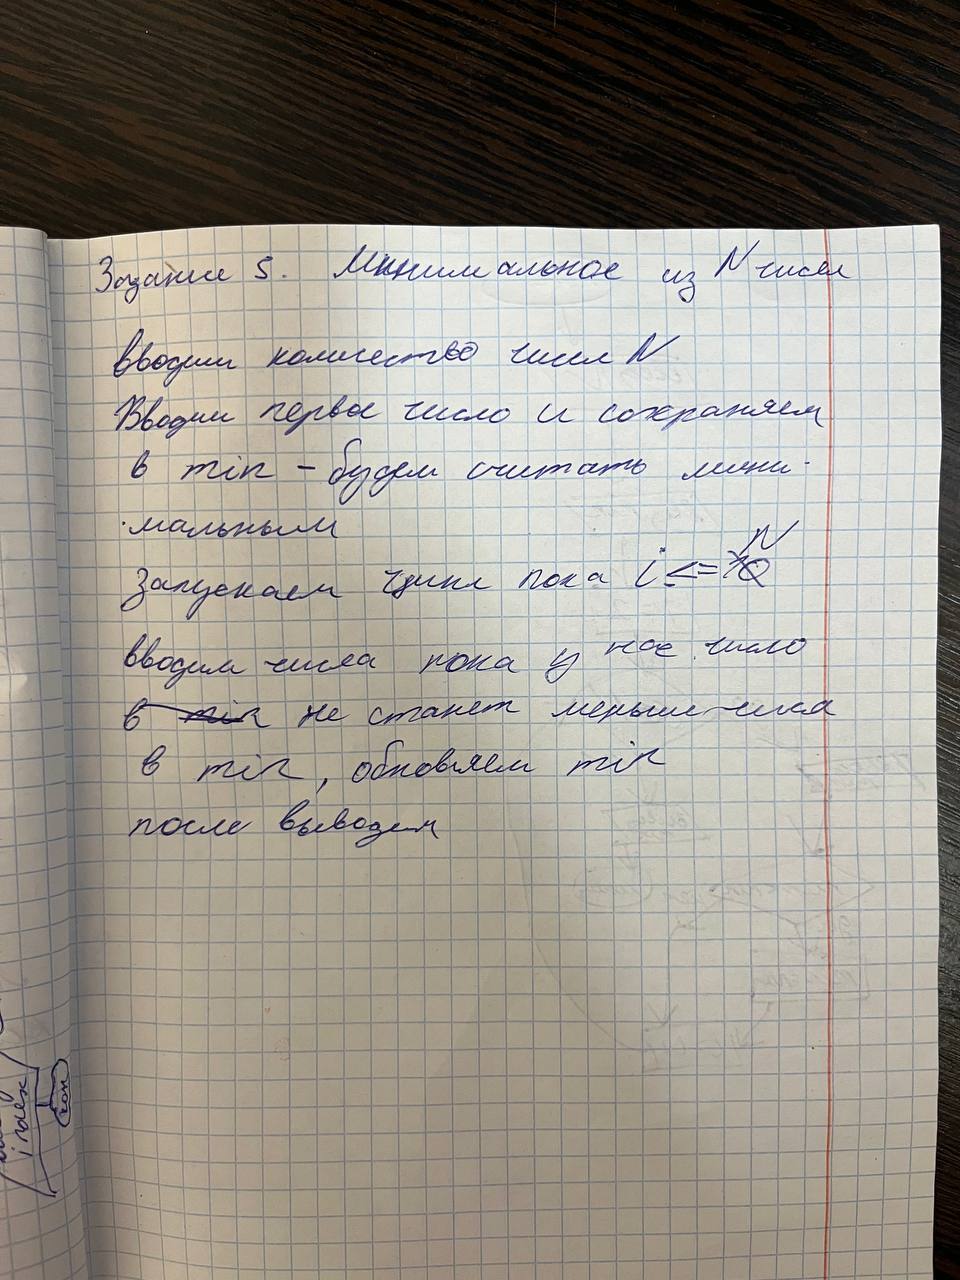 Задание 5. Минимальное из N чисел
вводим количество чисел N
Вводим первое число и сохраняем
в min - будем считать мини-
мальным
Запускаем цикл пока i <= N
вводим числа пока у нас число
не станет меньше числа
в min, обновляем min
после выводим